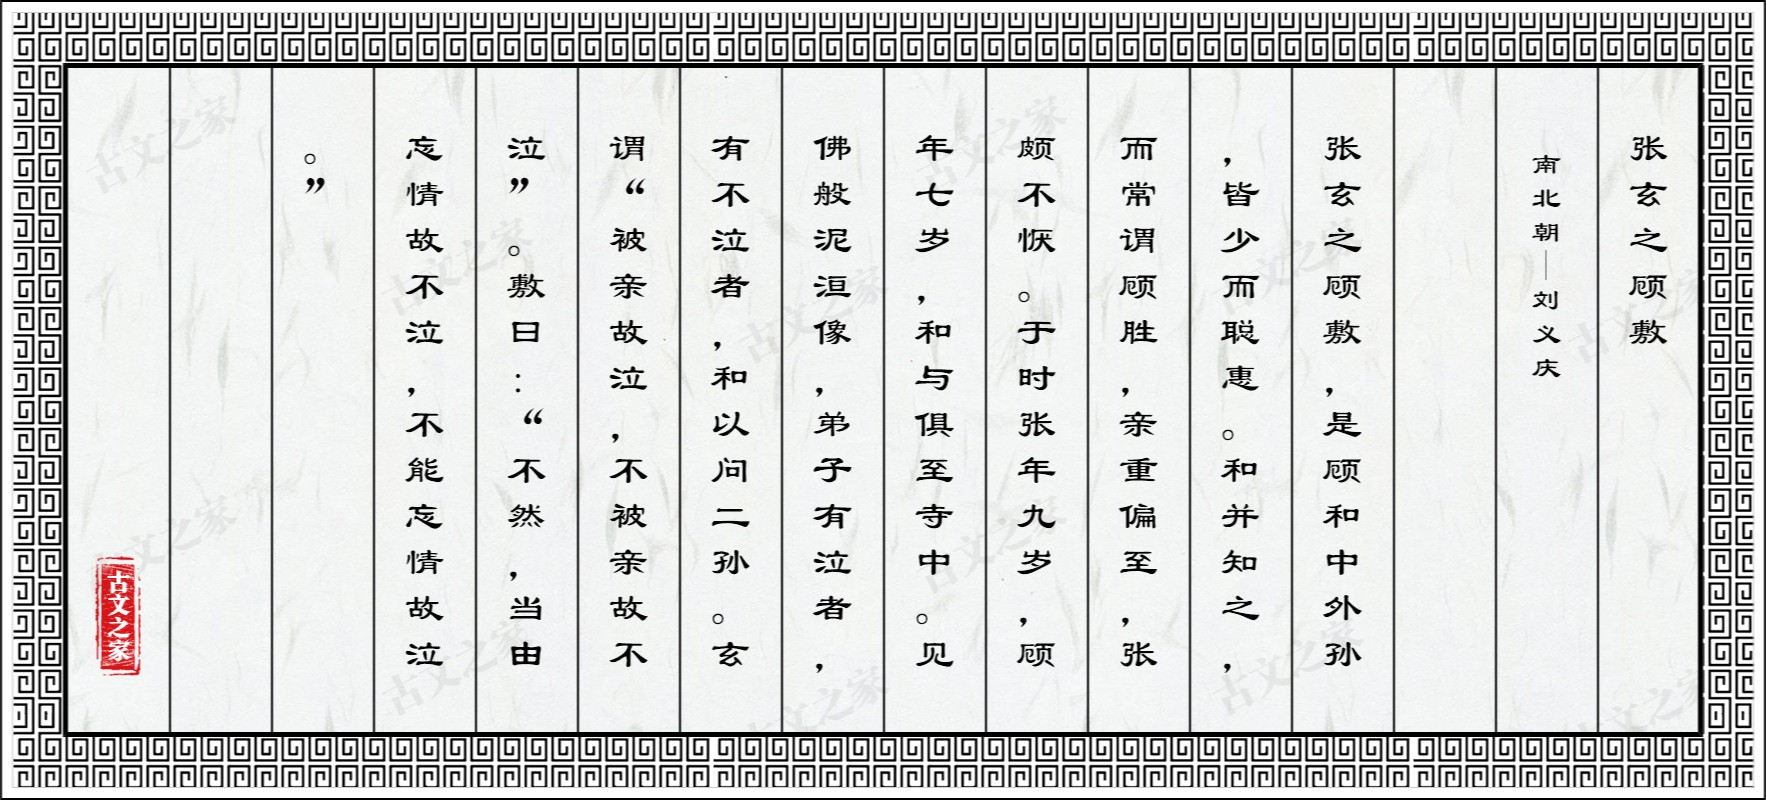 张玄之顾敷
南北朝—刘义庆
张玄之顾敷，是顾和中外孙
，皆少而聪惠。和并知之，
而常谓顾胜，亲重偏至，张
颇不恹。于时张年九岁，顾
年七岁，和与俱至寺中。见
佛般泥洹像，弟子有泣者，
有不泣者，和以问二孙。玄
谓“被亲故泣，不被亲故不
泣”。敷曰：“不然，当由
忘情故不泣，不能忘情故泣
。”
古文之家